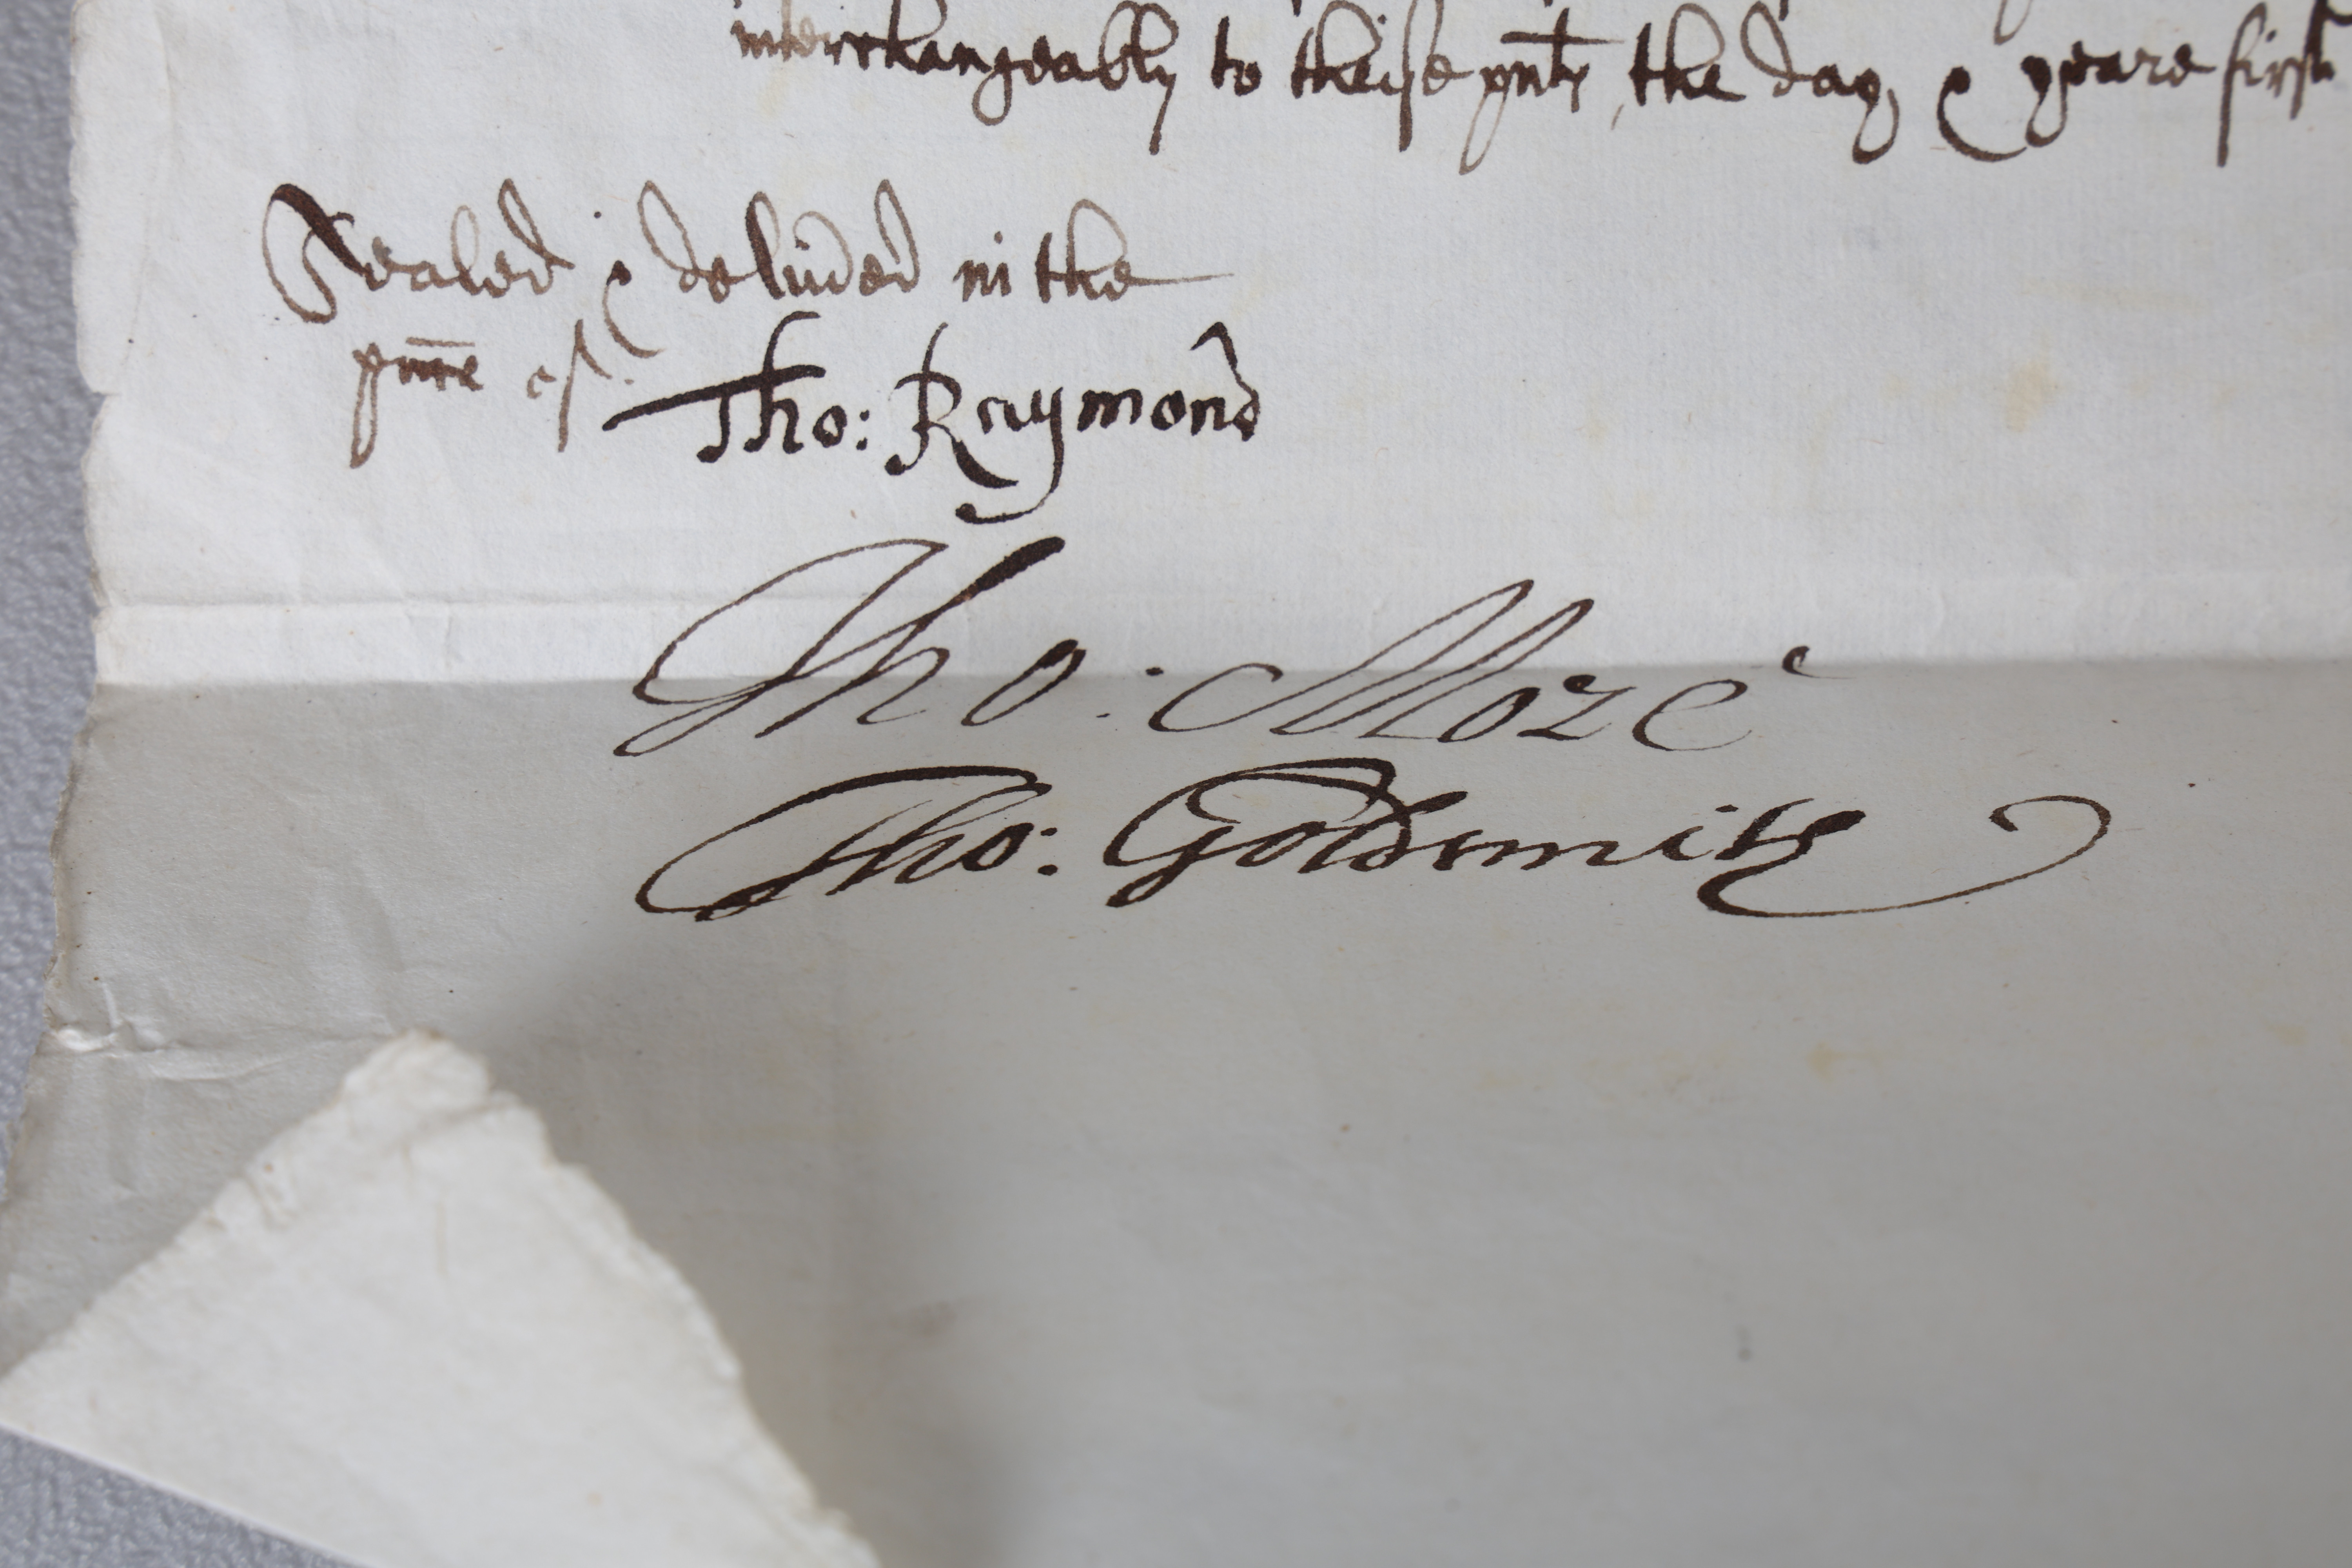 interchangeably to theise pnts, the day & yeare first
Sealed & deliůed in the
pnce of.
Tho: Raymond
Tho: More
Tho: Goldsmith